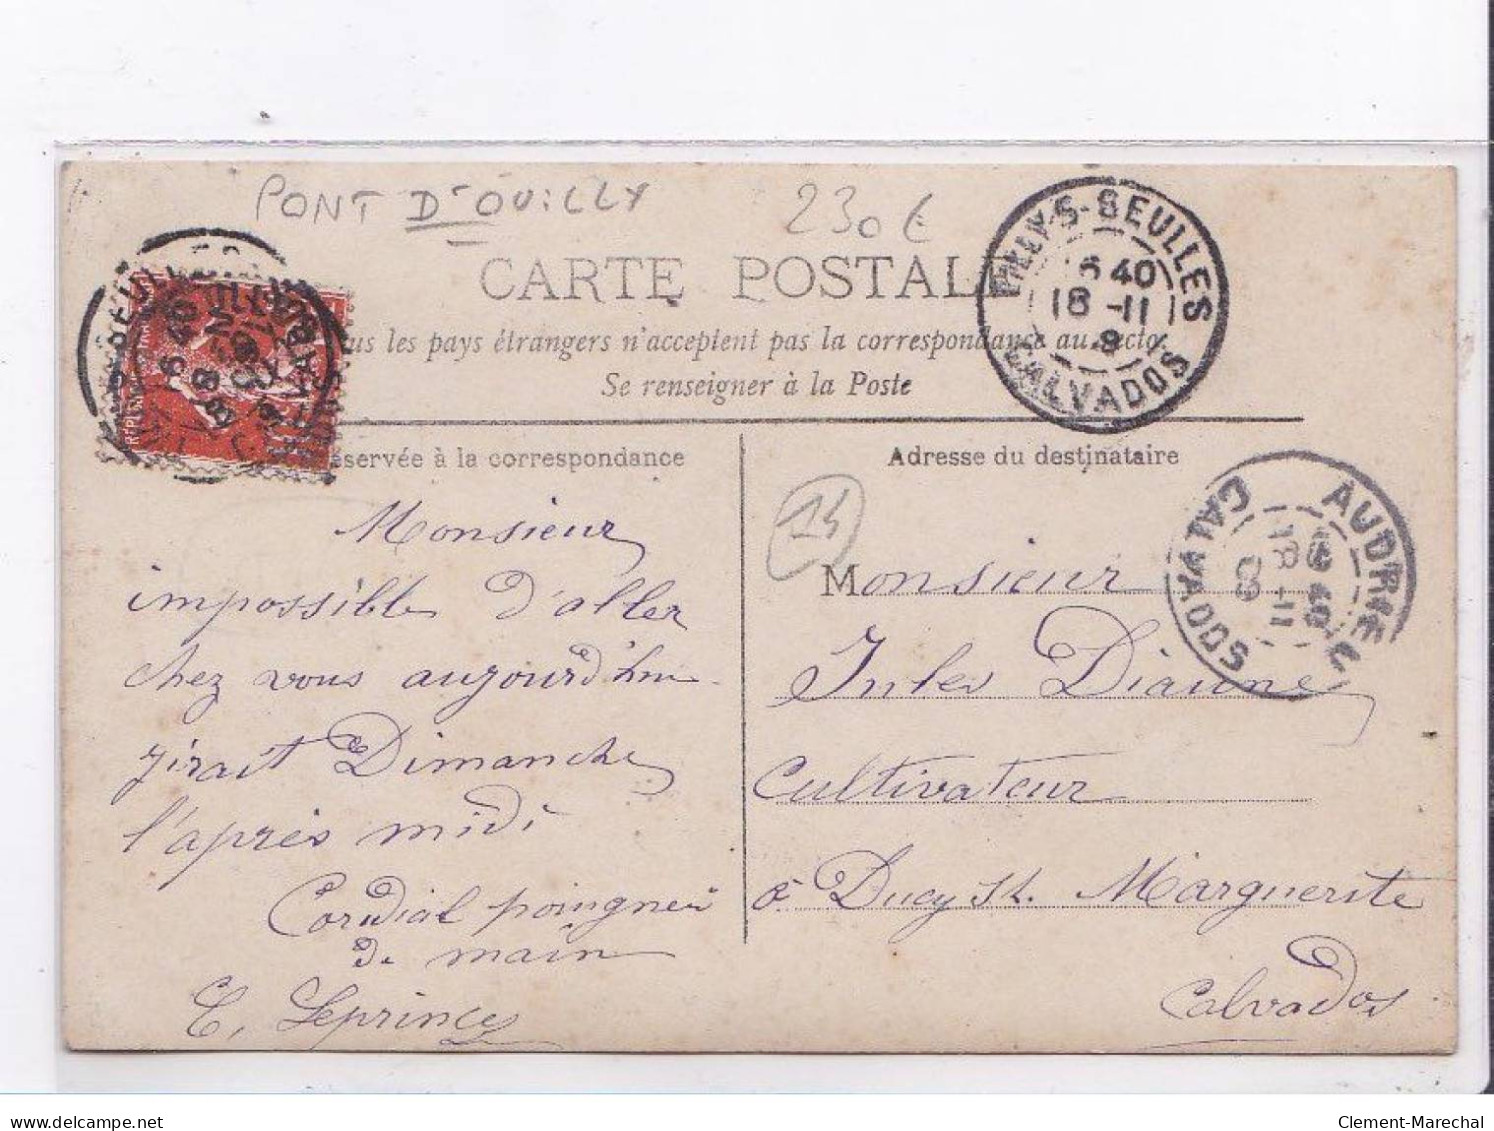 PONT D'OUILLY
230€
CARTE POSTALE
les pays étrangers n'acceptent pas la correspondance au recto.
Se renseigner à la Poste
TILLY-S-SEULLES
6 40
18 -11
8
CALVADOS
réservée à la correspondance
Adresse du destinataire
Monsieur
impossible d'aller
chez vous aujourd'hui
j'irait Dimanche
l'après midi
Cordial poingneé
de main
E. Leprince
14
Monsieur
Jules Dianne
Cultivateur
à Ducy St. Marguerite
Calvados
AUDRIEU
18 -11
08
CALVADOS
www.delcampe.net
Clement-Marechal